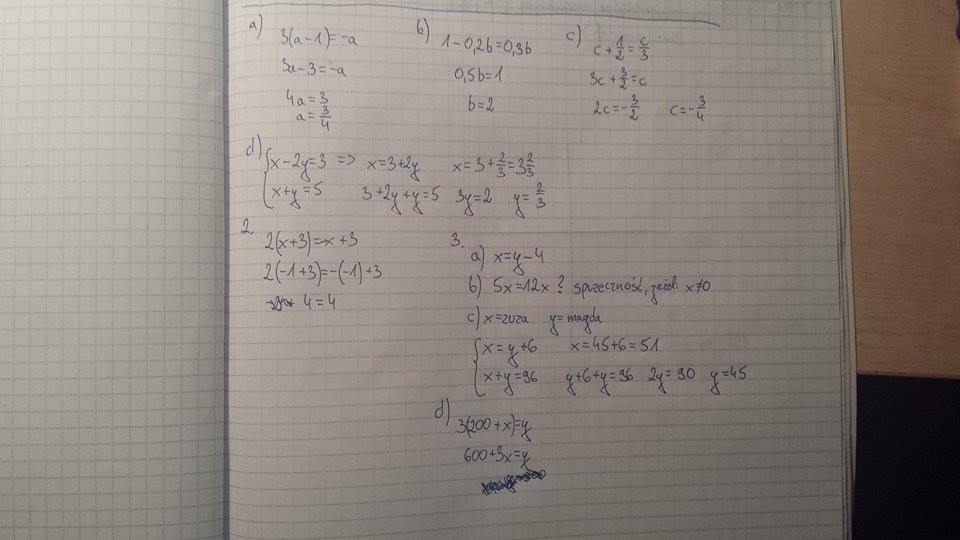 a) 3(a-1)=-a
3a-3=-a
4a=3
a=3/4
b) 1-0,2b=0,3b
0,5b=1
b=2
c) c+1/2=c/3
3c+3/2=c
2c=-3/2 c=-3/4
d) x-2y=3 => x=3+2y x=3+2/3=3 2/3
x+y=5 3+2y+y=5 3y=2 y=2/3
2.
2(x+3)=-x+3
2(-1+3)=-(-1)+3
4=4
3.
a) x=y-4
b) 5x=12x ? sprzeczność, jeżeli x≠0
c) x=zuza y=magda
x=y+6 x=45+6=51
x+y=96 y+6+y=96 2y=90 y=45
d)
3(200+x)=y
600+3x=y